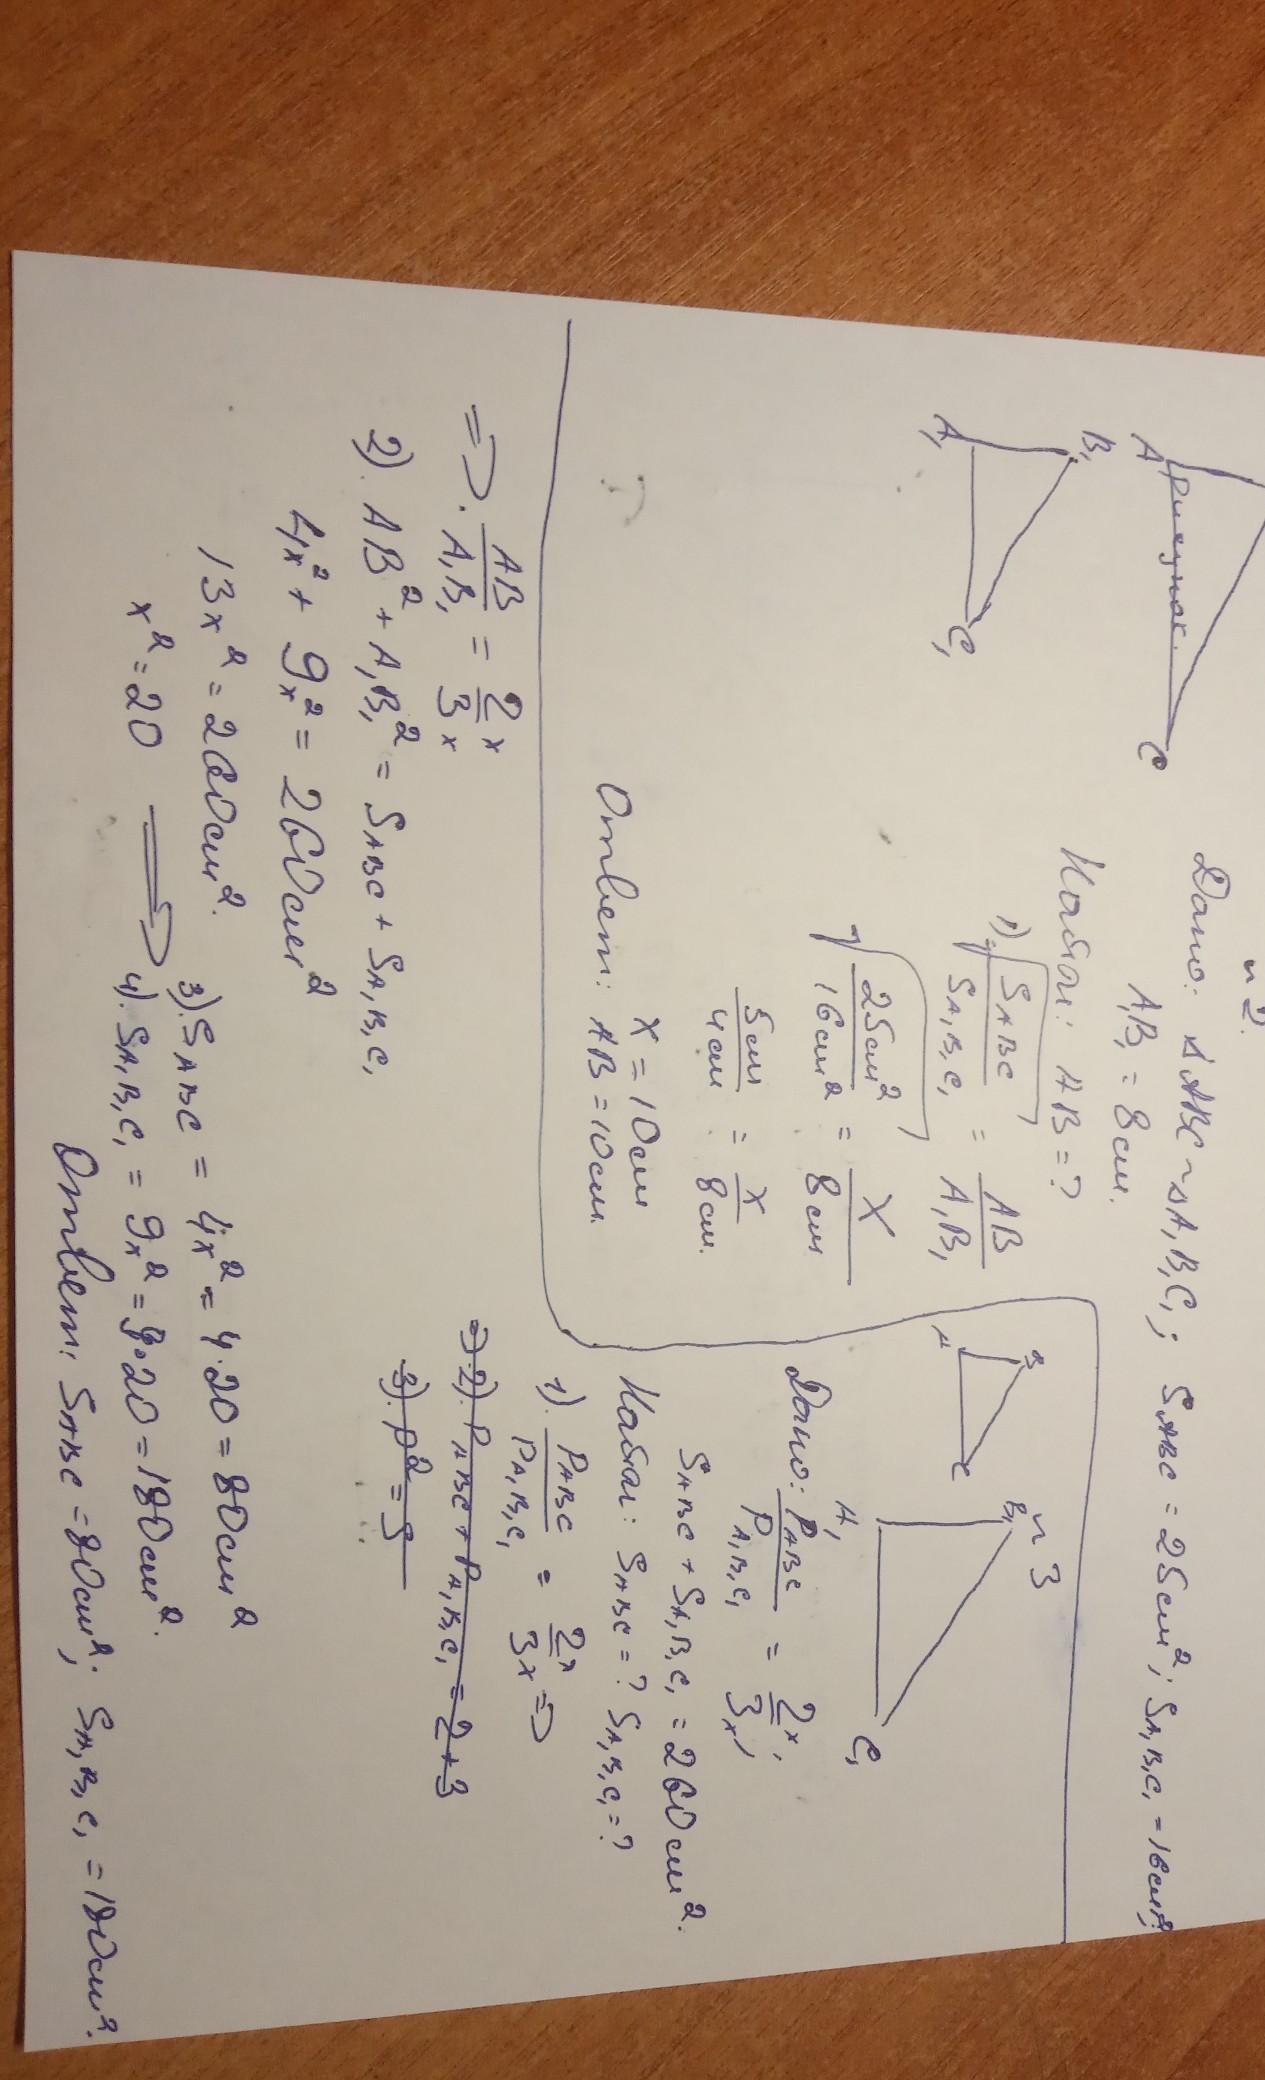 n 2.
Дано: ΔABC ~ ΔA₁B₁C₁; SABC = 25см²; SA₁B₁C₁ = 16см²;
A₁B₁ = 8см.
Найти: AB = ?
A рисунок. C
B₁
A₁ C₁
1) √SABC/SA₁B₁C₁ = AB/A₁B₁
√25см²/16см² = X/8см
5см/4см = X/8см.
X = 10см
Ответ: AB = 10см.
n 3
B
A C
B₁
A₁ C₁
Дано: PABC/PA₁B₁C₁ = 2x/3x;
SABC + SA₁B₁C₁ = 260см².
Найти: SABC = ? SA₁B₁C₁ = ?
1). PABC/PA₁B₁C₁ = 2x/3x =>
=> 2). PABC + PA₁B₁C₁ = 2+3
3). p² = 5
=> . AB/A₁B₁ = 2x/3x
2). AB² + A₁B₁² = SABC + SA₁B₁C₁
4x² + 9x² = 260см²
13x² = 260см².
x² = 20 =>
3). SABC = 4x² = 4·20 = 80см²
4). SA₁B₁C₁ = 9x² = 9·20 = 180см².
Ответ: SABC = 80см²; SA₁B₁C₁ = 180см².